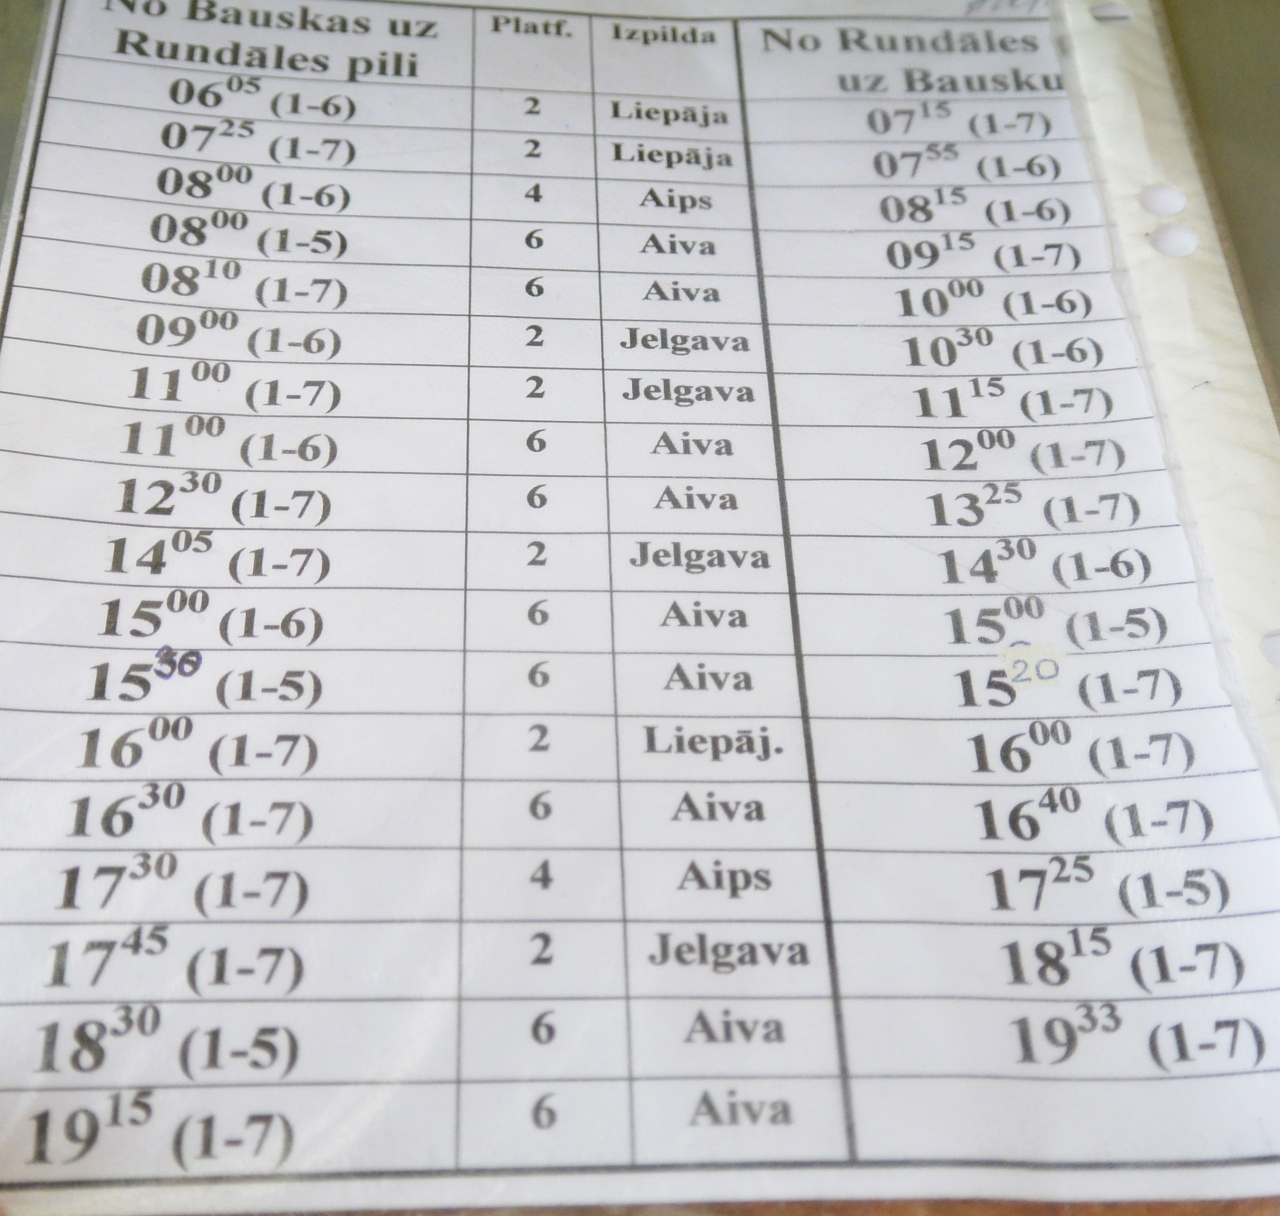 No Bauskas uz Platf. Izpilda No Rundāles
Rundāles pili uz Bausku
06 05 (1-6) 2 Liepāja 07 15 (1-7)
07 25 (1-7) 2 Liepāja 07 55 (1-6)
08 00 (1-6) 4 Aips 08 15 (1-6)
08 00 (1-5) 6 Aiva 09 15 (1-7)
08 10 (1-7) 6 Aiva 10 00 (1-6)
09 00 (1-6) 2 Jelgava 10 30 (1-6)
11 00 (1-7) 2 Jelgava 11 15 (1-7)
11 00 (1-6) 6 Aiva 12 00 (1-7)
12 30 (1-7) 6 Aiva 13 25 (1-7)
14 05 (1-7) 2 Jelgava 14 30 (1-6)
15 00 (1-6) 6 Aiva 15 00 (1-5)
15 30 (1-5) 6 Aiva 15 20 (1-7)
16 00 (1-7) 2 Liepāj. 16 00 (1-7)
16 30 (1-7) 6 Aiva 16 40 (1-7)
17 30 (1-7) 4 Aips 17 25 (1-5)
17 45 (1-7) 2 Jelgava 18 15 (1-7)
18 30 (1-5) 6 Aiva 19 33 (1-7)
19 15 (1-7) 6 Aiva